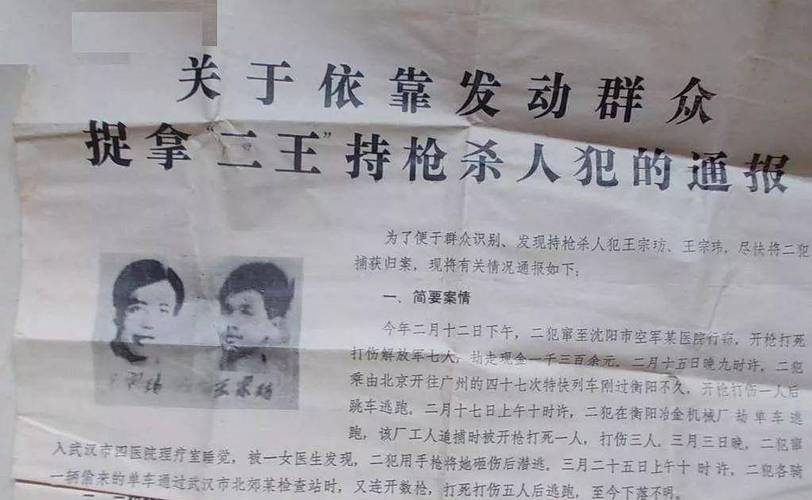 关于依靠发动群众
捉拿“二王”持枪杀人犯的通报
为了便于群众识别、发现持枪杀人犯王宗坊、王宗玮，尽快将二犯
捕获归案，现将有关情况通报如下：
一、简要案情
今年二月十二日下午，二犯窜至沈阳市空军某医院行窃，开枪打死
打伤解放军七人，抢走现金一千三百余元。二月十五日晚九时许，二犯
乘由北京开往广州的四十七次特快列车刚过衡阳不久，开枪打伤一人后
跳车逃跑。二月十七日上午十时许，二犯在衡阳冶金机械厂 单车逃
跑，该厂工人追捕时被开枪打死一人，打伤三人。三月三日晚，二犯窜
入武汉市四医院理疗室睡觉，被一女医生发现，二犯用手枪将她砸伤后潜逃。三月二十五日上午十时许，二犯各骑
一辆偷来的单车通过武汉市北郊某检查站时，又连开数枪，打死打伤五人后逃跑，至今下落不明。